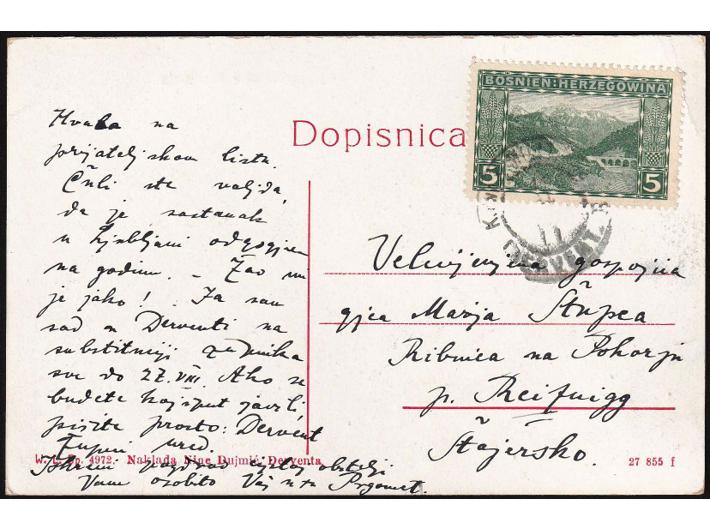 BOSNIEN-HERZEGOWINA
5 5
Dopisnica
Hvala na
prijateljskom listu.
Čuli ste valjda,
da je sastanak
u Ljubljani odgogjen
na godinu. - Žao mi
je jako! Ja sam
sad u Derventi na
substituciji
sve do 27. VIII. Ako se
budete kojiput javili,
pišite prosto: Dervent
Župni ured.
obitelji
Vam osobito Vaš
Velecijenjena gospojica
gjca Marija Štupca
Ribnica na Pohorju
p. Reifnigg
Štajersko.
4972. Naklada Nine Dujmić, Derventa
27 855 f